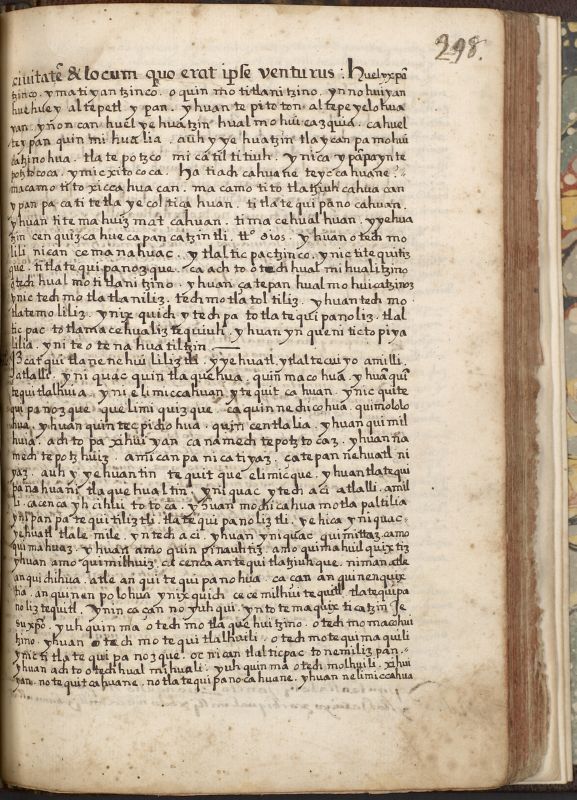 298.
civitatē & locum quo erat ipse venturus : huel yxpā
tzinco . ymatiyantzinco . oquinmotitlanitzino . ynnohuiyan
huehuey altepetl ypan . yhuan tepitoton altepeyelohua
yan . yn oncan huel yehuatzin hualmohuicazquia . ca huel
teypan quinmihualia . auh yyehuatzin tlaycanpamohui
catzinohua . tlatepotzco micatiltitiuh . ynica ypāpaynte
potztococa . ynicxitococa . Ha tiachcahuane teyccahuane ?
macamo titoxiccahuacan . macamo titotlatziuhcahuacan
ypanpa catitetlayecolticahuan . titlatequipanocahuan .
yhuan titemahuizmatcahuan . timacehualhuan . yyehua
tzin cenquizcahuecapancatzintli . ttō dios . yhuan otechmo
lili nican cemanahuac . ytlalticpactzinco . ynic titequitiz
que . titlatequipanozque . ca achto otech hualmihualitzino
otech hualmotitlanitzino . yhuan çatepan hualmohuicatzinoz
ynic techmotlatlaniliz . techmotlatoltiliz . yhuan techmo
tlatemoliliz . ynixquich ytechpa totlatequipanoliz . tlal
ticpac totlamacehualiztequiuh . yhuan ynquenin ticto piya
lilia . yniteotenahuatiltzin .
Ȝcatqui tlanenehuililiztli . yyehuatl ytlaltecuiyo amilli ,
atlalli . yniquac quintlaquehua . quinmacohua . yhuan quī
tequitlalhuia . ynielimiccahuan ytequitcahuan . ynic quite
quipanozque . quelimiquizque . ca quinnechicohua . quimololo
hua . yhuan quintecpichohua . quincentlalia . yhuan quimil
huia . achtopa xihuiyan . canamechtepotztocaz . yhuan na
mechtepotzhuiz . amicanpanicatiyaz . çatepan nehuatl ni
yaz . auh yyehuantin tequitque elimicque . yhuan tlatequi
panahuani tlaquehualtin . yniquac ytech aci atlalli . amil
li . ca cenca yhcihui totoca . yhuan mochicahua motlapaltilia
ynipanpa tequitiliztli . tlatequipanoliztli . yehica yniquac
yehuatl tlale mile . yntech aci . yhuan yniquac quimittaz . camo
quimahuaz . yhuan amo quinpinauhtiz . amo quimahuilquixtiz
yhuan amo quimilhuiz . ca cenca antequitlatziuhque . niman atle
anquichihua . atle anquitequipanohua . ca çan anquinenquix
tia . anquinenpolohua ynixquich cecemilhuitequitl . tlatequipa
noliztequitl . ynin ca canno yuhqui . yntotemaquixticatzin Je
su xpō . yuhquinma otechmotlaquehuitzino . otechmomacohui
tzino . yhuan otechmotequitlalhuili . otechmotequimaquili
ynic titlatequipanozque . oc nican tlalticpac tonemilizpan .
yhuan achto otech hualmihuali . yuhquinma otechmolhuili . xihui
yan . notequitcahuane . notlatequipanocahuane . yhuan nelimiccahua